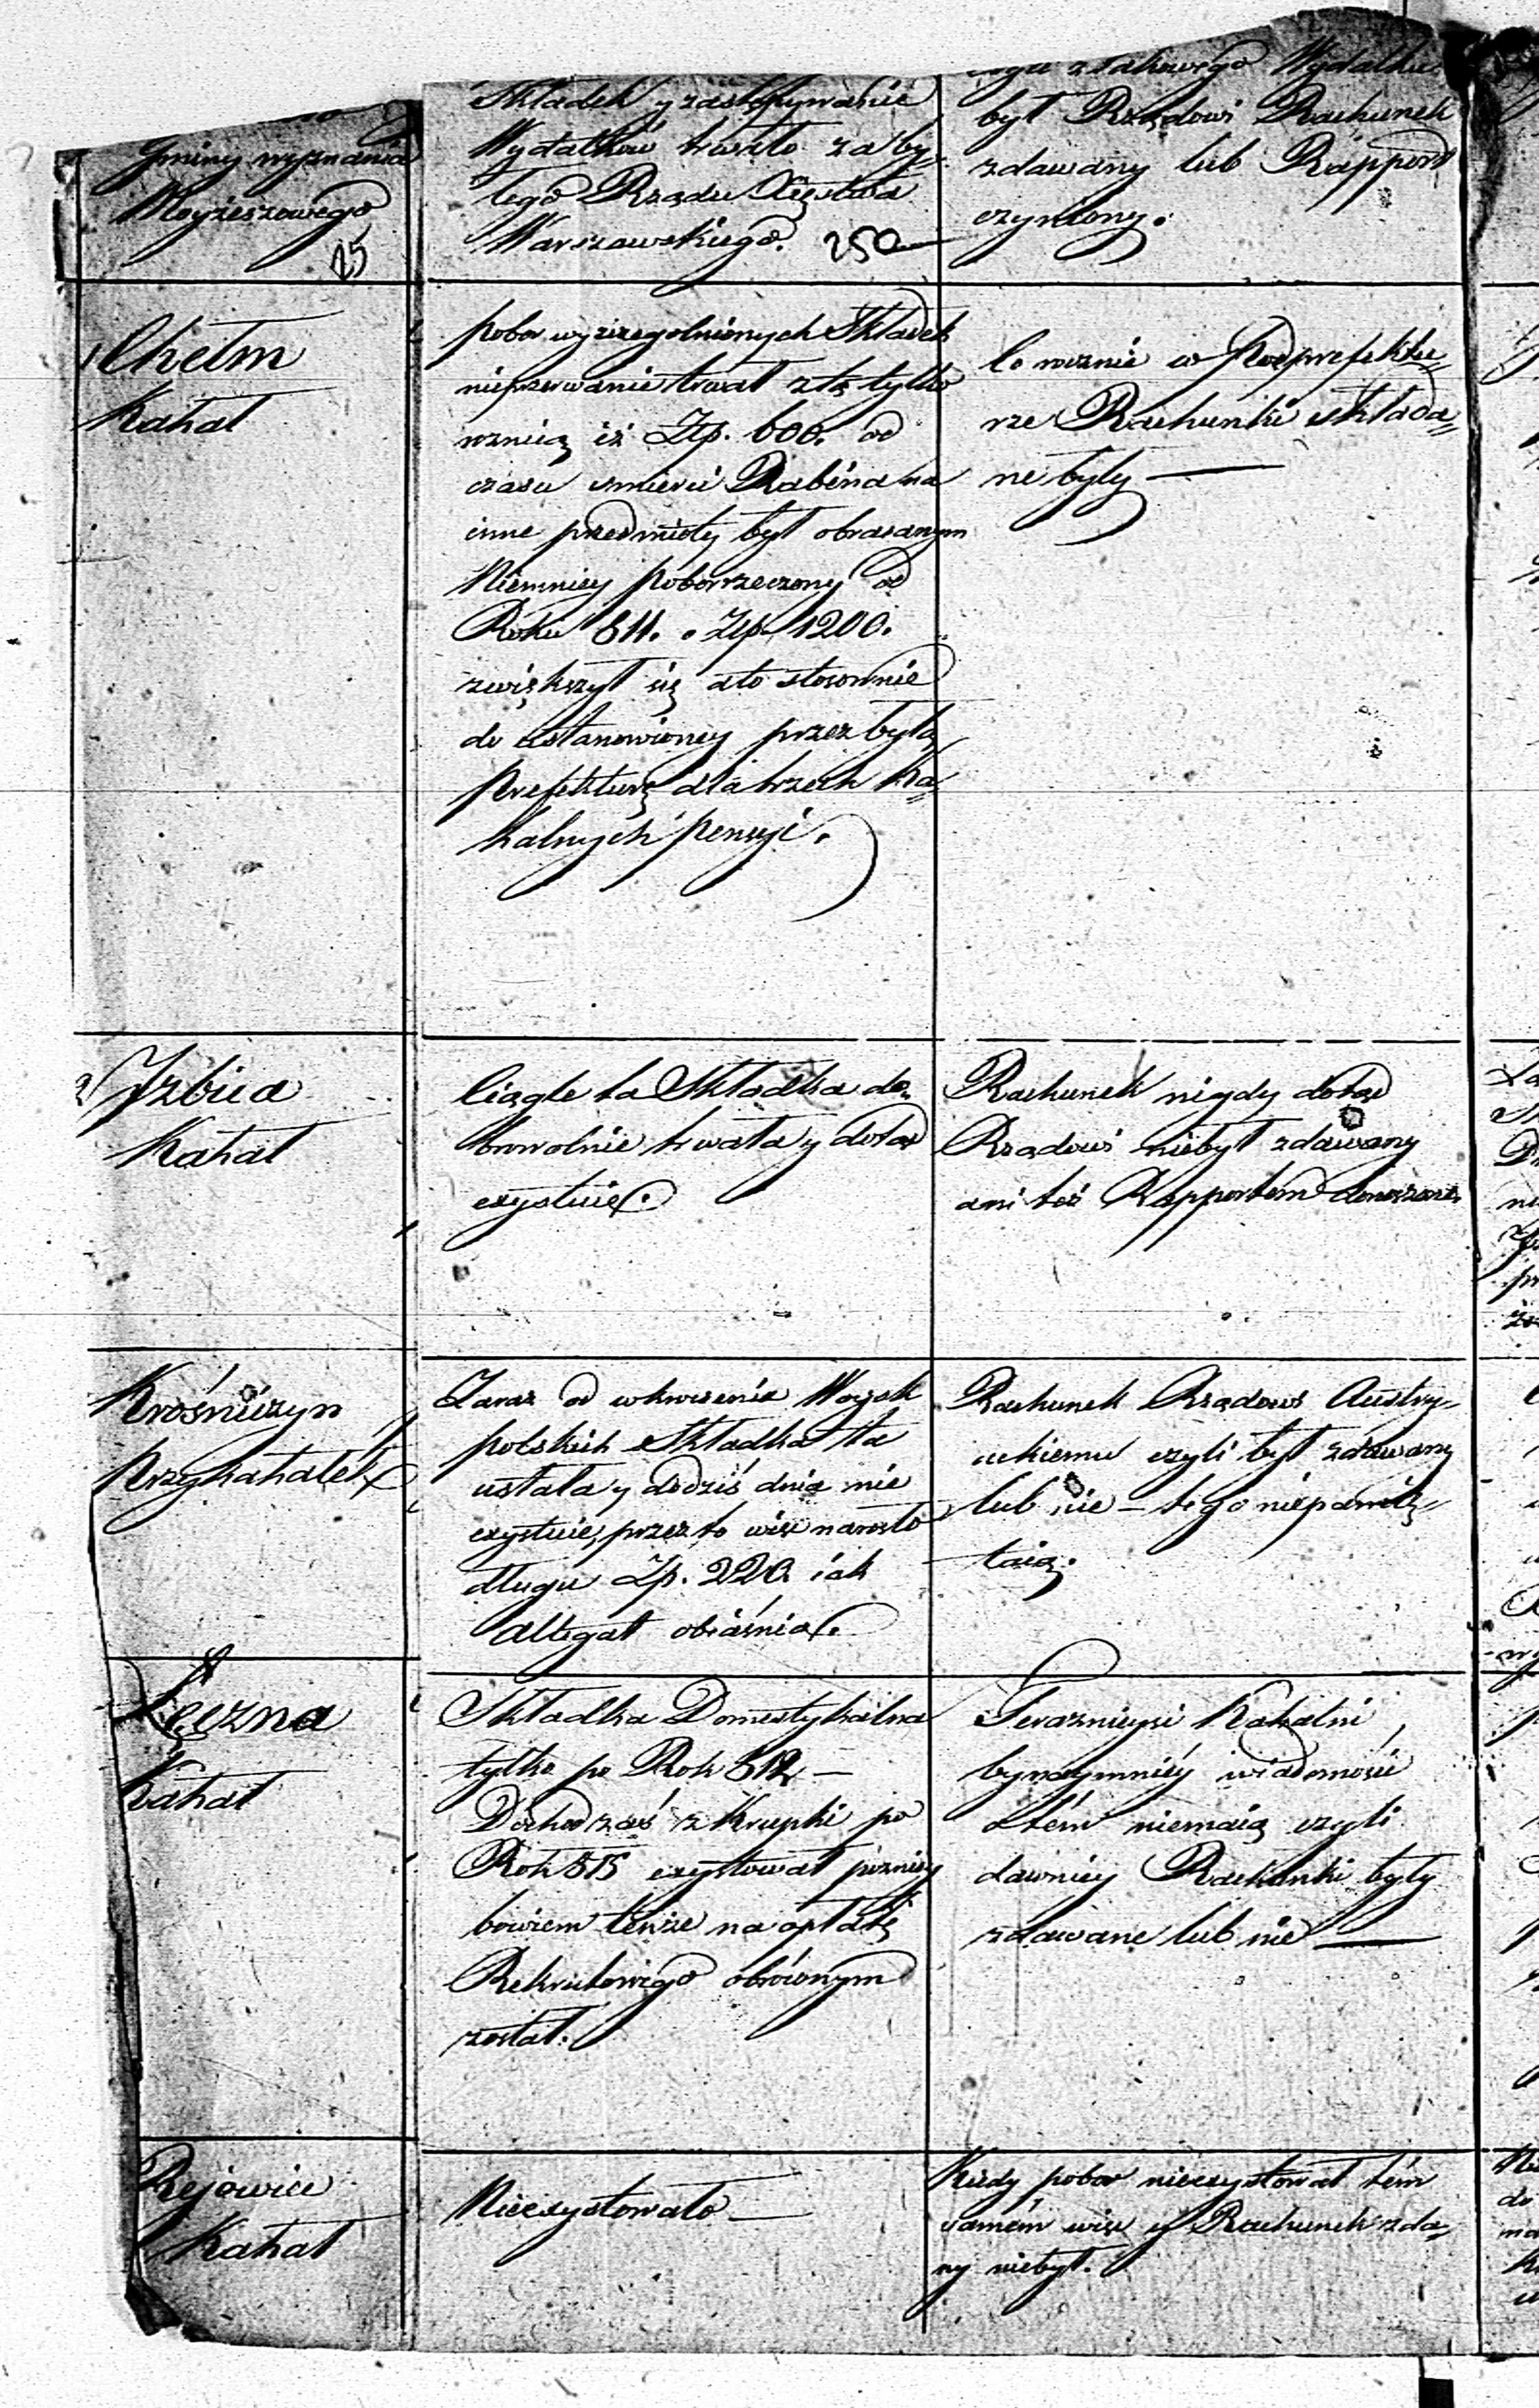 Gminy wyznania
Moyżeszowego
25
Składek y zastępywanie
Wydatków trwało za by„
łego Rządu Xięstwa
Warszawskiego. 250
z takowego Wydatku
był Rządowi Rachunek
zdawany lub Rapport
czyniony.
1 Chełm
Kahał
pobor wyszczegolnionych Składek
nieprzerwanie trwał z tą tylko
roznicą iż Złp. 600. od
czasu smierci Rabina na
inne przedmioty był obracanym
Niemniey pobor rzeczony od
Roku 811. o Złp. 1200.
zwiększył się a to stosownie
do ustanowioney przez byłą
Prefekturę dla trzech Ka„
halnych pensyi.
Co rocznie w Podprefektu„
rze Rachunki składa„
ne były —
2 Jzbica
Kahał
Ciągle ta Składka do„
browolnie trwała y dotąd
exystuie.
Rachunek nigdy dotąd
Rządowi niebył zdawany
ani też Rapportem donoszone
Krośniczyn
Przykahałek
Zaraz od wkroczenia Woysk
polskich Składka ta
ustała y do dziś dnia nie
exystuie, przez to więc narosło
długu Zp. 220. iak
allegat obiaśnia.
Rachunek Rządowi Austry„
ackiemu czyli był zdawany
lub nie – tego niepamię„
taią.
Łęczna
Kahał
Składka Domestykalna
tylko po Rok 812 —
Dochod zaś z Krupki po
Rok 815 exystował pozniey
bowiem tenże na opłatę
Rekrutowego obróconym
został.
Teraznieysi Kahalni
bynaymniéy wiadomości
o tém niemaią czyli
dawniey Rachunki były
zdawane lub nie —
Rejowiec
Kahał
Nieexystowało —
Kiedy pobor nieexystował tém
samém więc y Rachunek zda„
ny niebył.